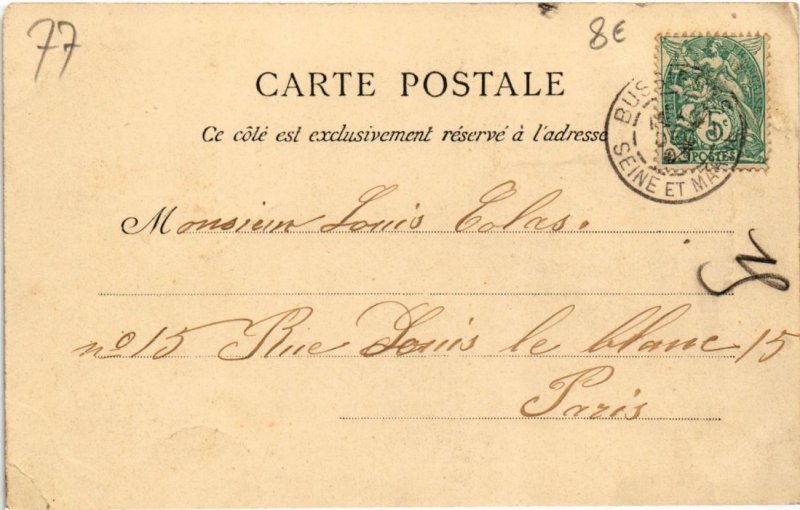 77
8€
CARTE POSTALE
Ce côté est exclusivement réservé à l'adresse
BUS
SEINE ET MAR
5c
POSTES
Monsieur Louis Colas.
no 15 Rue Louis le blanc 15
Paris